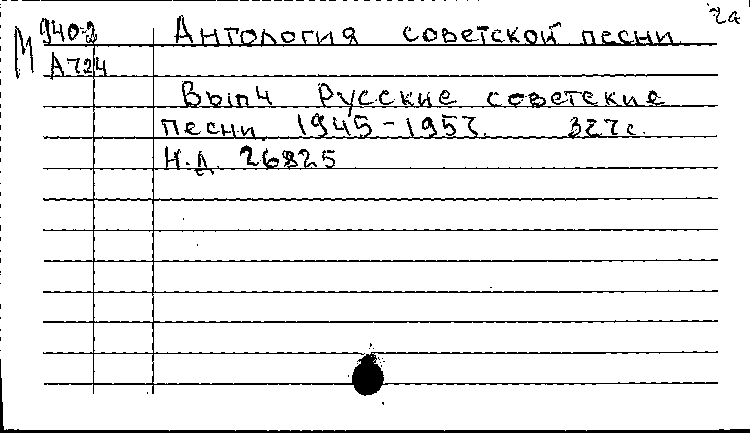 2а
М 940-2 Антология советской песни
А724
Вып4 Русские советские
песни. 1945-1957. 327с.
Н.Д. 26825